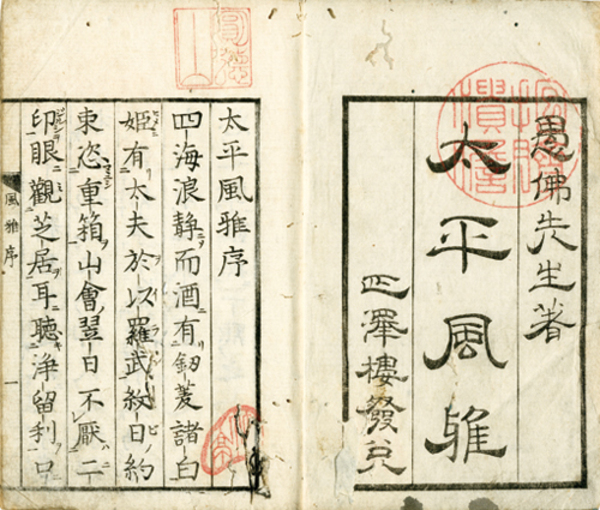 愚佛先生著
太平風雅
澤樓發兌
太平風雅序
四海浪静而酒有釼菱諸白
姫有太夫於以羅武紋日約
束恣重箱山會翌日不厭二
印眼觀芝居耳聽浄留利口
風雅序 一